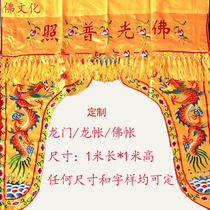 佛文化
照普光佛
定制
龙门/龙帐/佛帐
尺寸：1米长*1米高
任何尺寸和字样均可定